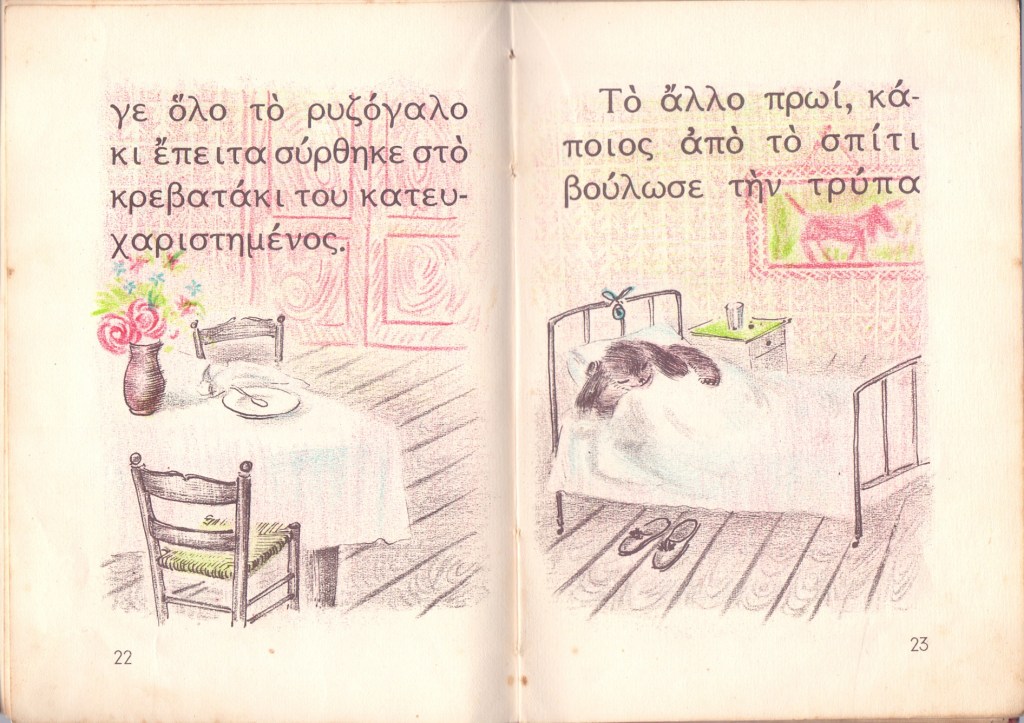 γε ὅλο τὸ ρυζόγαλο
κι ἔπειτα σύρθηκε στὸ
κρεβατάκι του κατευ-
χαριστημένος.
22
Τὸ ἄλλο πρωί, κά-
ποιος ἀπὸ τὸ σπίτι
βούλωσε τὴν τρύπα
23